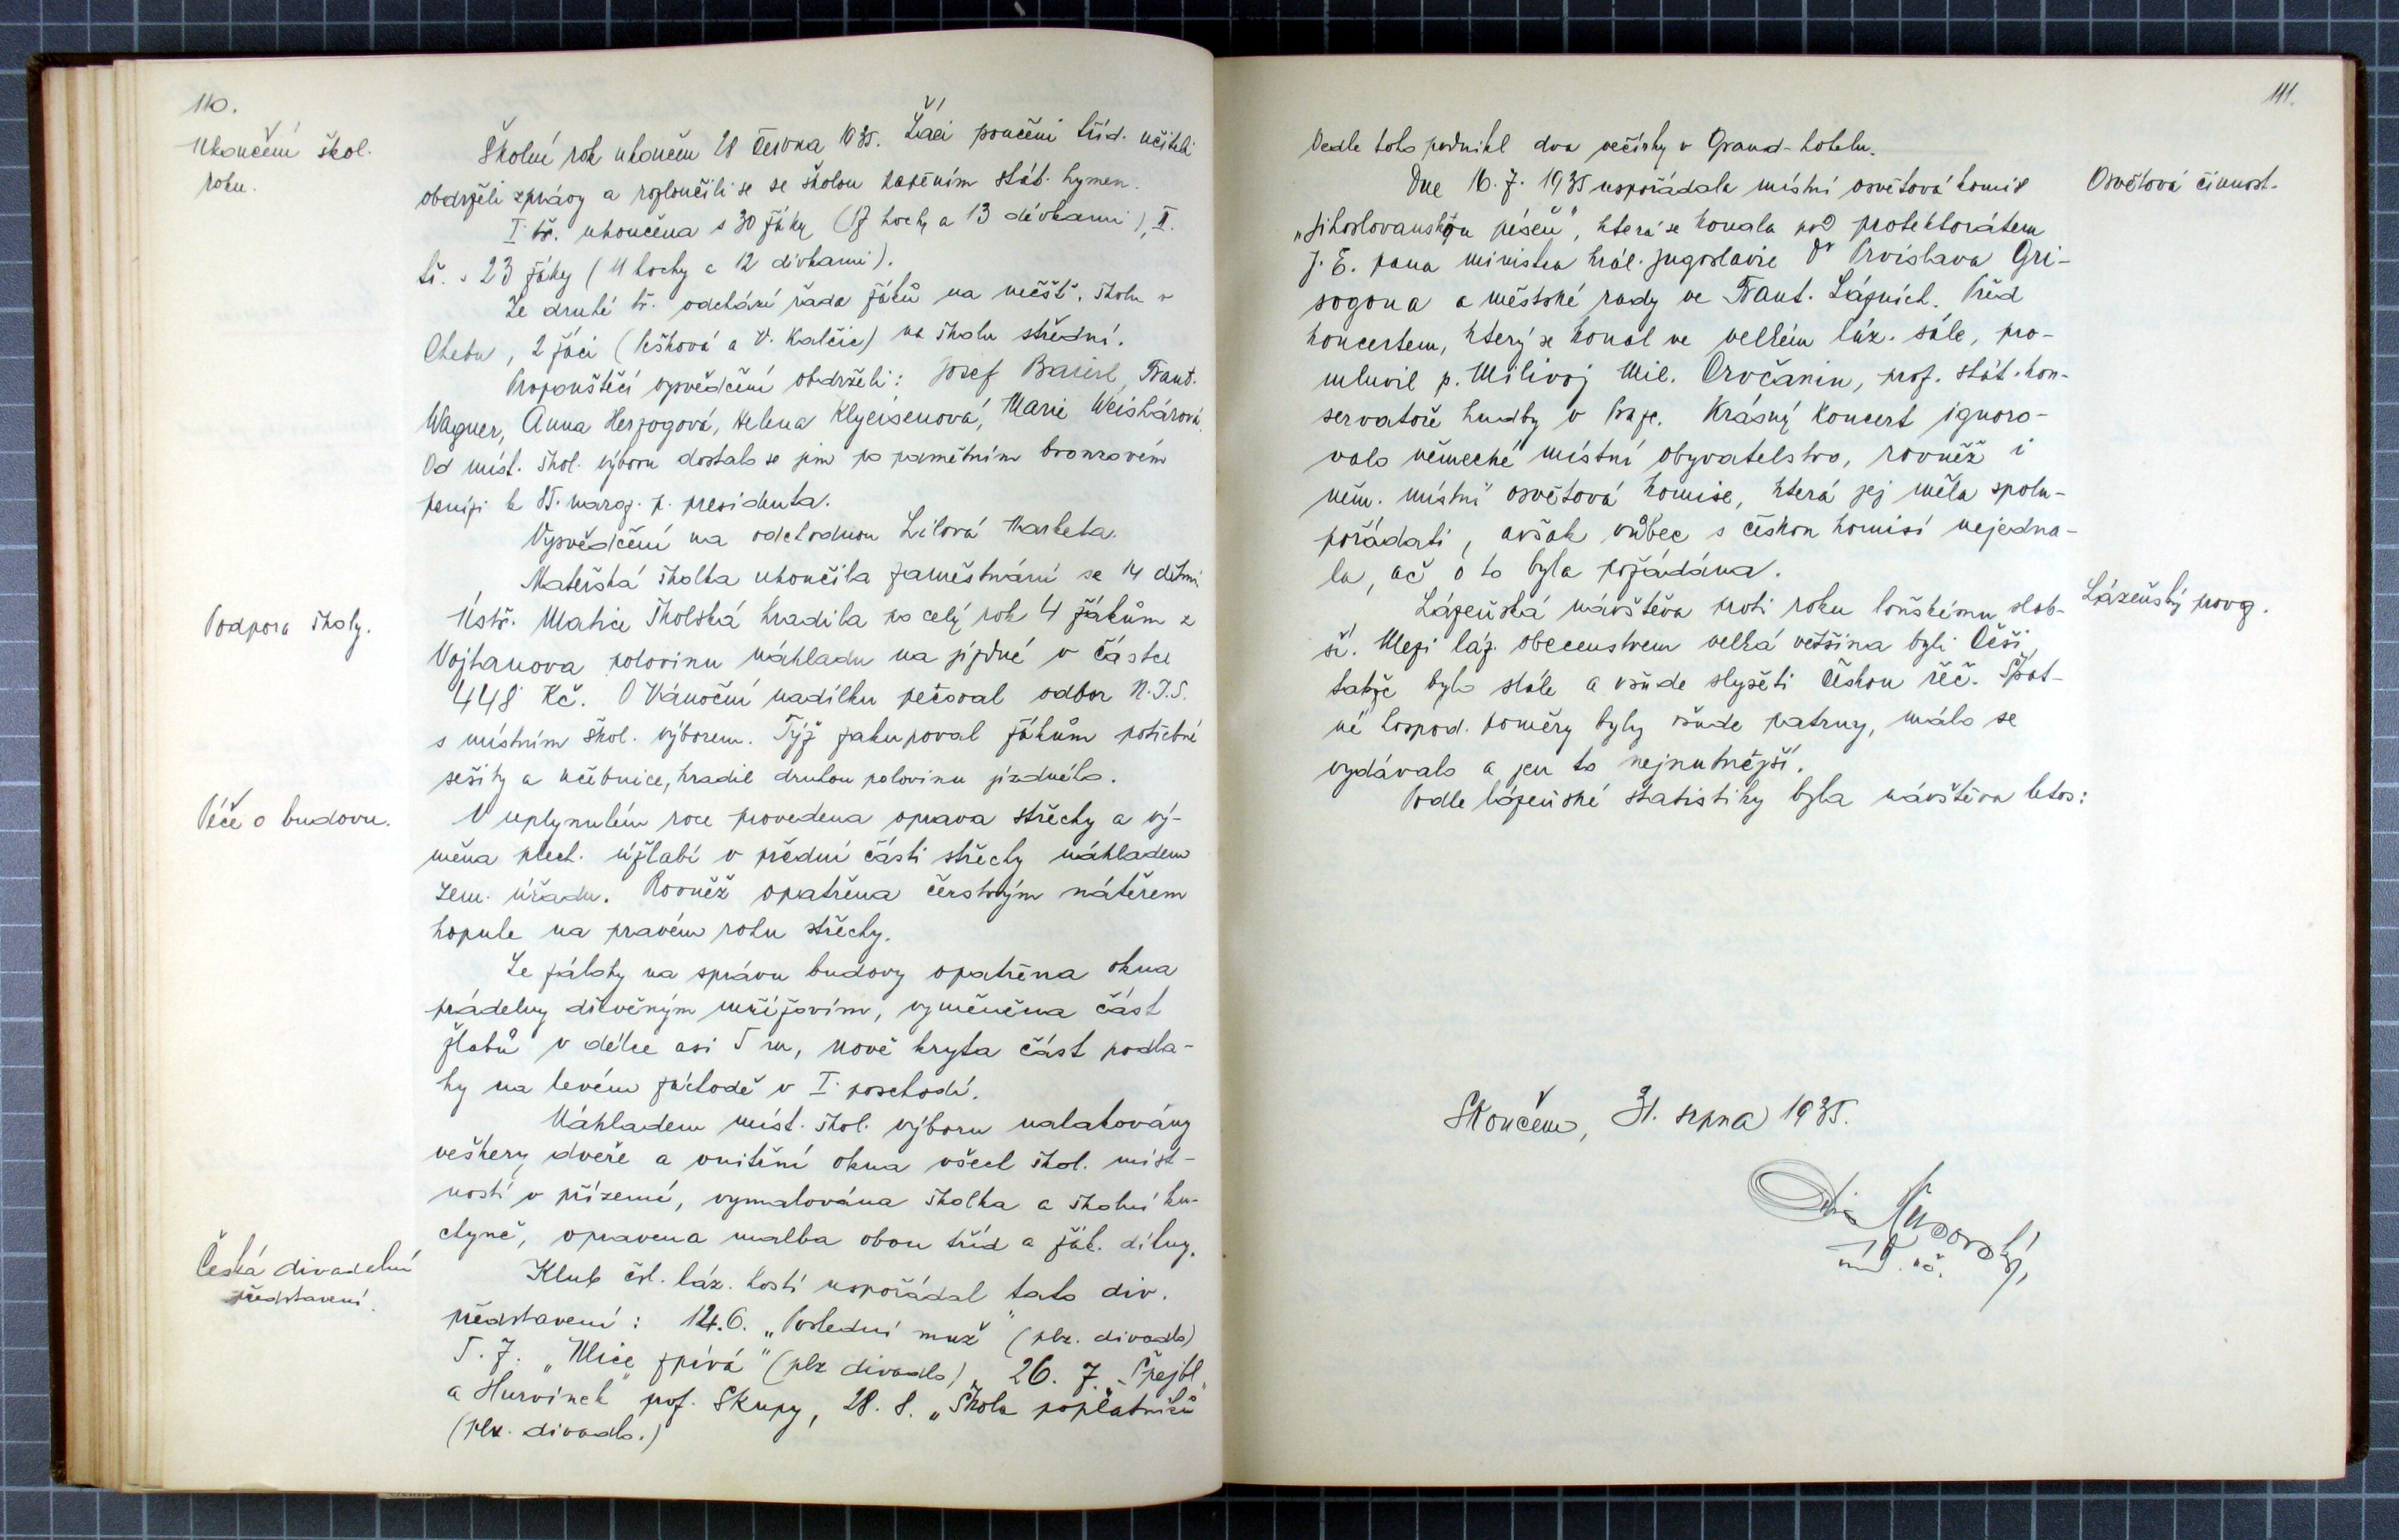 110.
Ukončení škol.
roku.
Školní rok ukončen 28 června 1935. Žáci poučeni tříd. učiteli
obdrželi zprávy a rozloučili se se školou zapěním stát. hymen.
I. tř. ukončena s 30 žáky (17 hochy a 13 dívkami), II.
tř. s 23 žáky (11 hochy a 12 dívkami).
Ze druhé tř. odchází řada žáků na měšť. školu v
Chebu, 2 žáci (Pešková a V. Kalčic) na školu střední.
Propouštěcí vysvědčení obdrželi: Josef Baierl, Frant.
Wagner, Anna Herzogová, Helena Klyeisenová, Marie Weishárová.
Od míst. škol. výboru dostalo se jim po pamětním bronzovém
penízi k 85. naroz. p. presidenta.
Vysvědčení na odchodnou Lilová Markéta.
Mateřská školka ukončila zaměstnání se 14 dětmi
Podpora školy.
Ústř. Matice Školská hradila po celý rok 4 žákům z
Vojtanova polovinu nákladu na jízdné v částce
448 Kč. O Vánoční nadílku pečoval odbor N.J.S.
s místním škol. výborem. Týž zakupoval žákům potřebné
sešity a učebnice, hradil druhou polovinu jízdného.
Péče o budovu.
V uplynulém roce provedena oprava střechy a vý-
měna plech. úžlabí v přední části střechy nákladem
zem. úřadu. Rovněž opatřena čerstvým nátěrem
kopule na pravém rohu střechy.
Ze zálohy na správu budovy opatřena okna
prádelny dřevěným mřížovím, vyměněna část
žlabů v délce asi 5 m, nově kryta část podla-
hy na levém záchodě v I. poschodí.
Nákladem míst. škol. výboru nalakovány
veškery dveře a vnitřní okna všech škol. míst-
ností v přízemí, vymalována školka a školní ku-
chyně, opravena malba obou tříd a žák. dílny.
Česká divadelní
představení.
Klub čsl. láz. hostí uspořádal tato div.
představení: 14.6. „Poslední muž" (plz. divadlo)
5. 7. „Ulice zpívá" (plz divadlo), 26. 7. „Špejbl
a Hurvínek" prof. Skupy, 28. 8. „Škola poplatníků"
(plz. divadlo.)
111.
Vedle toho podnikl dva večírky v Grand-hotelu.
Osvětová činnost.
Dne 16. 7. 1935 uspořádala místní osvětová komise
„jihoslovanskou píseň", která se konala pod protektorátem
J. E. pana ministra král. Jugoslavie Dr Prvislava Gri-
sogona a městské rady ve Frant. Lázních. Před
koncertem, který se konal ve velkém láz. sále, pro-
mluvil p. Milivoj Mil. Crvčanin, prof. stát. kon-
servatoře hudby v Praze. Krásný koncert ignoro-
valo německé místní obyvatelstvo, rovněž i
něm. místní osvětová komise, která jej měla spolu-
pořádati, avšak vůbec s českou komisí nejedna-
la, ač o to byla požádána.
Lázeňský provoz.
Lázeňská návštěva proti roku loňskému slab-
ší. Mezi láz. obecenstvem velká většina byli Češi,
takže bylo stále a všude slyšeti českou řeč. Špat-
né hospod. poměry byly všude patrny, málo se
vydávalo a jen to nejnutnější.
Podle lázeňské statistiky byla návštěva letos:
Skončeno, 31. srpna 1935.